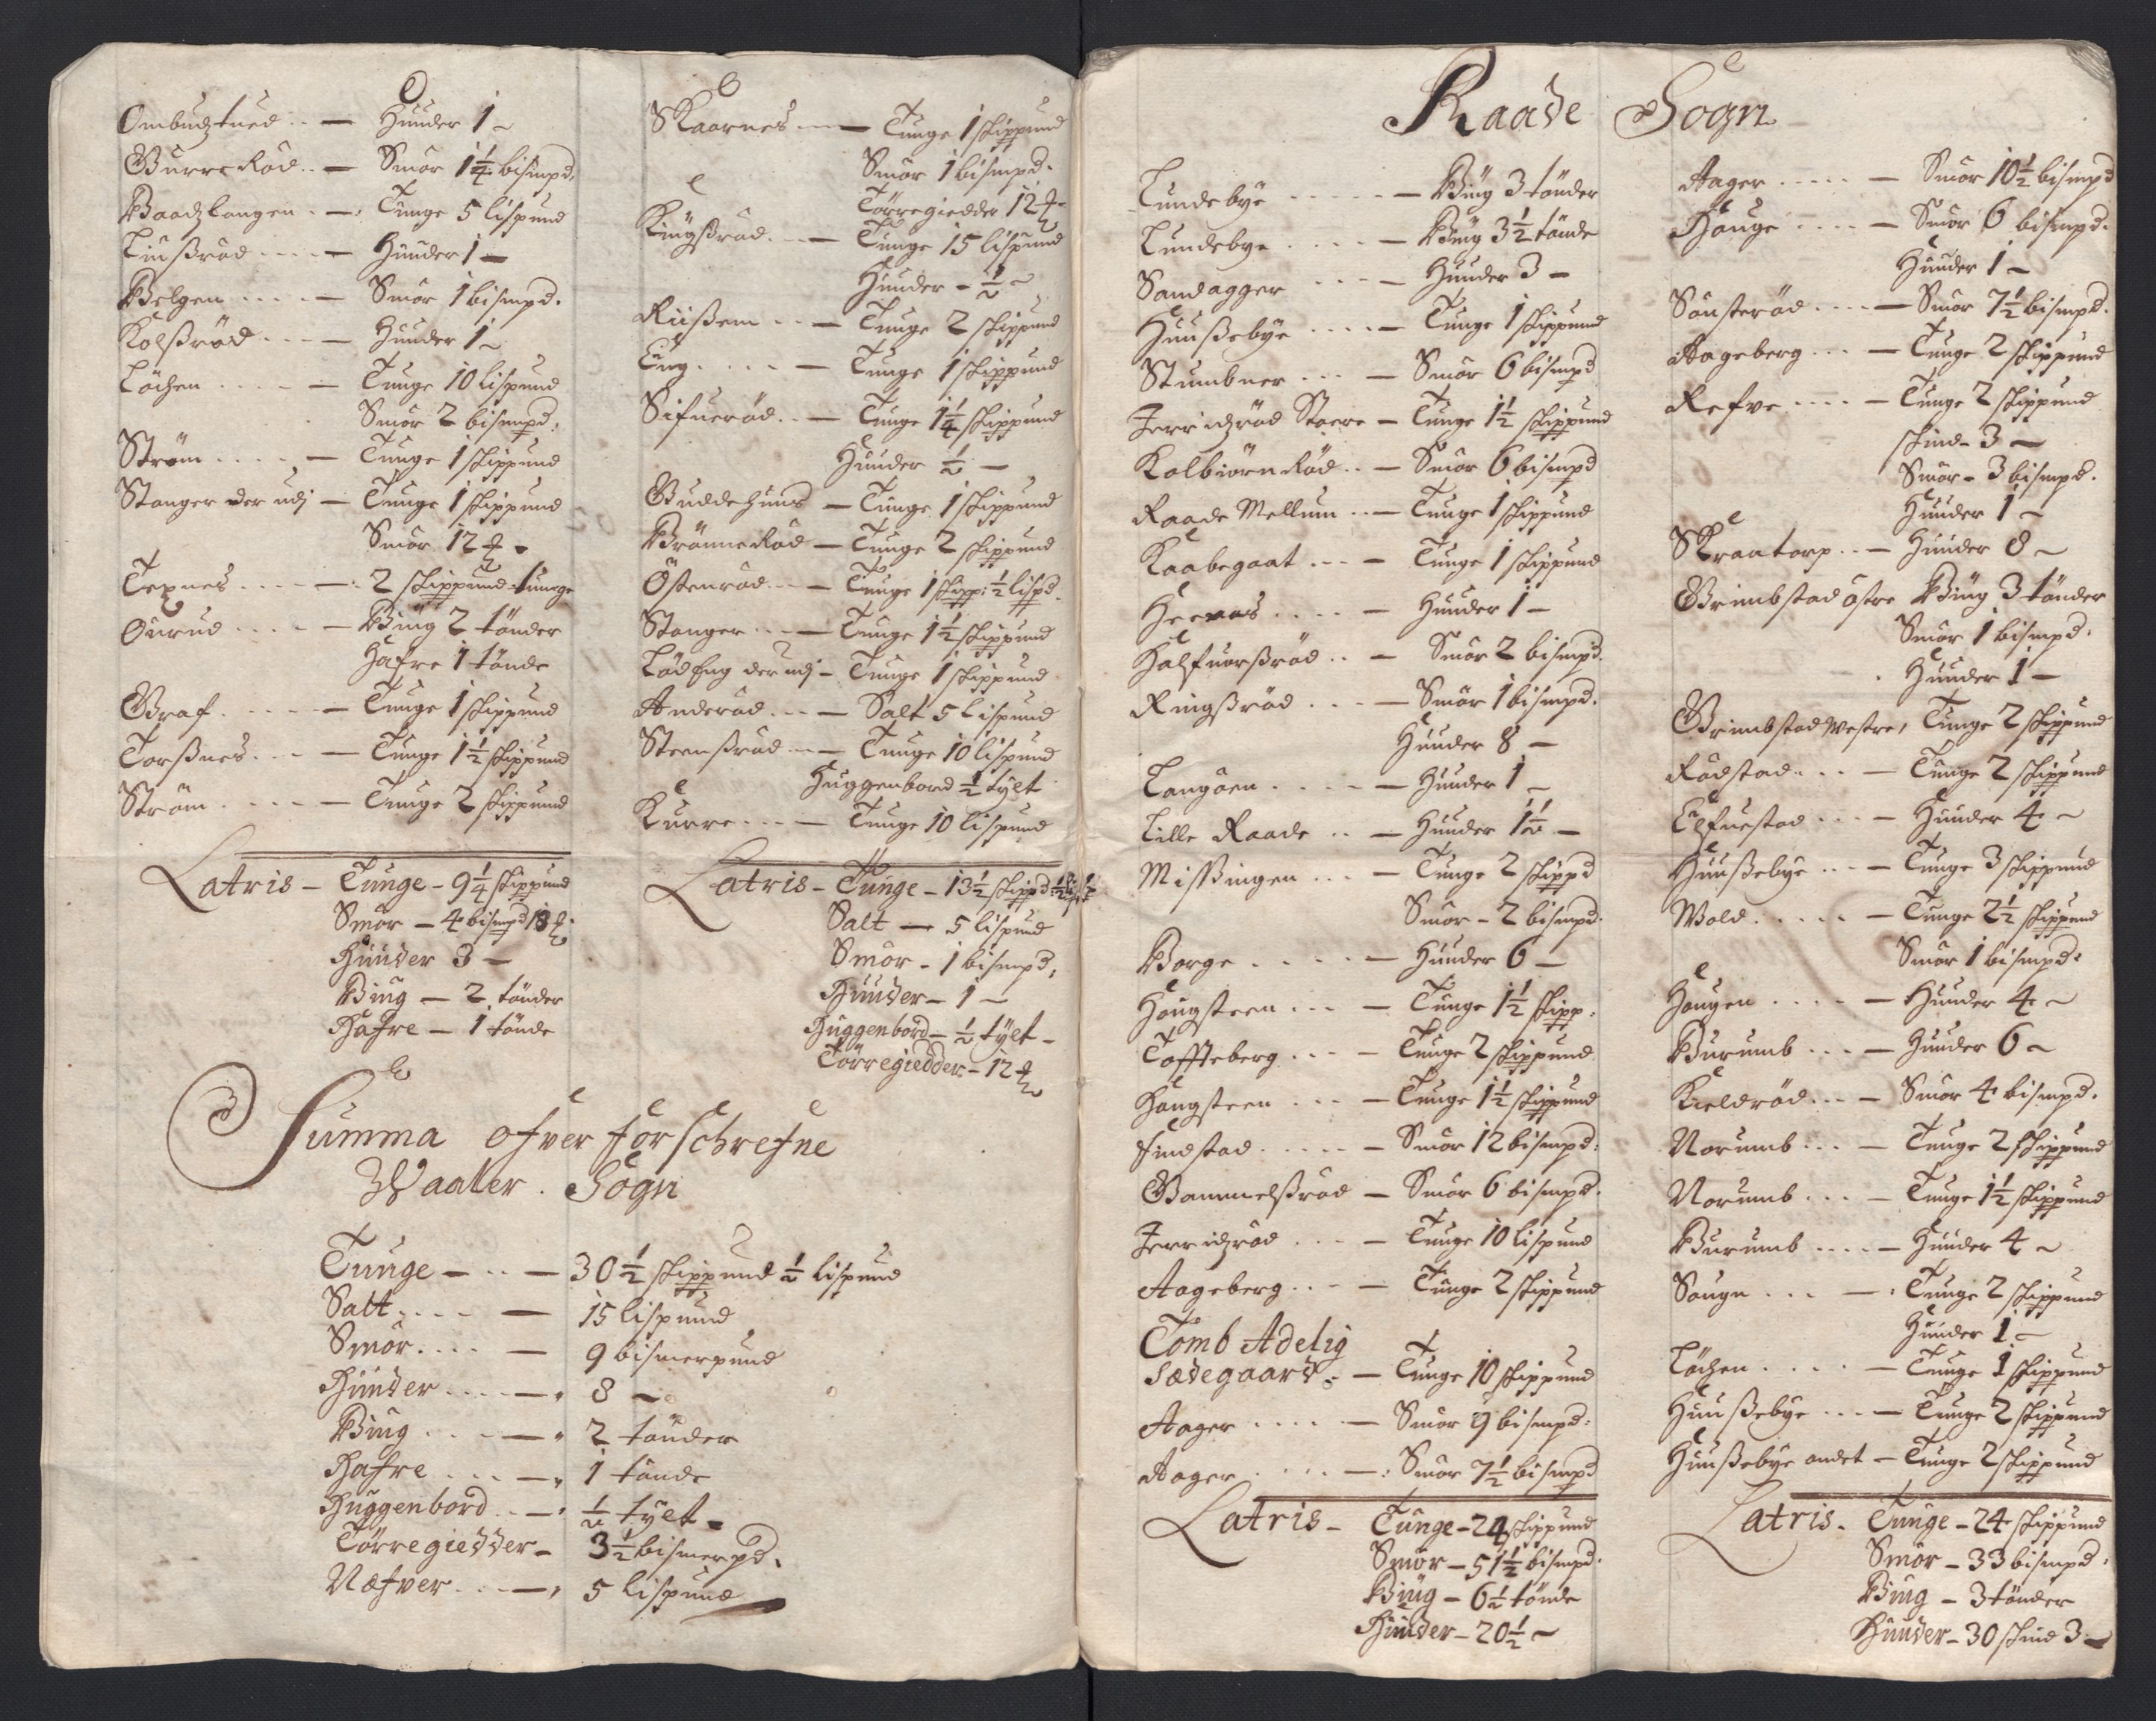 Ombudztued .. — Huuder 1 ~
Gurre Röd .. — Smör 1 1/4 bismpd.
Baadzlangen . — Tunge 5 lispund
Linßröd .... — Huuder 1 —
Belgen .... — Smör 1 bismpd.
Kolßröd ... — Huuder 1 ~
Löchen .... — Tunge 10 lispund
Smör 2 bismpd.
Ström .... — Tunge 1 skippund
Stanger der udj — Tunge 1 skippund
Smör 12 ℔ .
Texnes .... — 2 skippund tunge
Ourud .... — Bÿug 2 tönder
Hafre 1 tönde
Graf ..... — Tunge 1 skippund
Torßnes ... — Tunge 1 1/2 skippund
Ström .... — Tunge 2 skippund
Latris — Tunge — 9 1/4 skippund
Smör — 4 bismpd 13 ℔.
Huuder 3 —
Biug — 2 tönder
Hafre — 1 tönde
Skaarnes .. — Tunge 1 skippund
Smör 1 bismpd.
Törregiedder 12 ℔.
Kingßröd .. — Tunge 15 lispund
Huuder — 1/2 ~
Riißem .. — Tunge 2 skippund
Eng .... — Tunge 1 skippund
Sifueröd .. — Tunge 1 1/4 skippund
Huuder 1/2 —
Guddehuus — Tunge 1 skippund
Brönne Röd — Tunge 2 skippund
Östenröd .. — Tunge 1 skipp: 1/2 lispd.
Stanger .. — Tunge 1 1/2 skippund
Löd Eng der udj — Tunge 1 skippund
Anderöd ... — Salt 5 lispund
Steenßröd .. — Tunge 10 lispund
Huggenbord 1/2 tÿlt
Kurre ... — Tunge 10 lispund
Latris — Tunge — 13 1/2 skippd 1/2 lis℔
Salt — 5 lispund
Smör — 1 bismpd.
Huuder — 1 ~
Huggenbord — 1/2 tÿlt —
Törregiedder — 12 ℔
Summa ofver forschrefne
Waaler Sogn
Tunge — .. — 30 1/2 skippund 1/2 lispund
Salt .... — 15 lispund
Smör .... — 9 bismerpund
Huuder .... — 8 ~
Biug ... — 2 tönder
Hafre .... — 1 tönde
Huggenbord .. — 1/2 tÿlt —
Törregiedder — 3 1/2 bismerpd.
Næfver ... — 5 lispund
Raade Sogn
Lundebÿe ..... — Bÿug 3 tönder
Lundebye .... — Bÿug 3 1/2 tönde
Sandagger .... — Huuder 3 —
Huußebÿe .... — Tunge 1 skippund
Stumbner ... — Smör 6 bismpd
Jerridzröd Stoere — Tunge 1 1/2 skippund
Kolbiörn Röd .. — Smör 6 bismpd
Raade Mellum .. — Tunge 1 skippund
Kaabegaat ... — Tunge 1 skippund
Heenas .... — Huuder 1 —
Halfuorßröd .. — Smör 2 bismpd.
Ringßröd ... — Smör 1 bismpd.
Huuder 8 —
Langöen .... — Huuder 1 ~
Lille Raade .. — Huuder 1 1/2 —
Missingen ... — Tunge 2 skippd
Smör — 2 bismpd.
Borge ..... — Huuder 6 —
Hougsteen ... — Tunge 1 1/2 skipp:
Toffteberg ... — Tunge 2 skippund
Hougsteen ... — Tunge 1 1/2 skippund
Findstad ..... — Smör 12 bismpd:
Gammelßröd — Smör 6 bismpd.
Jerridzröd ... — Tunge 10 lispund
Aageberg .. — Tunge 2 skippund
Tomb Adelig
Sædegaard .. — Tunge 10 skippund
Aager .... — Smör 9 bismpd:
Aager .... — Smör 7 1/2 bismpd
Latris — Tunge — 24 skippund
Smör — 51 1/2 bismpd.
Biug — 6 1/2 tönde
Huuder — 20 1/2 ~
Aager ..... — Smör 10 1/2 bismpd
Houge .... — Smör 6 bismpd.
Huuder 1 ~
Sönsteröd .... — Smör 7 1/2 bismpd.
Aageberg ... — Tunge 2 skippund
Refve .... — Tunge 2 skippund
skind — 3 —
Smör — 3 bismpd.
Huuder 1 ~
Skraatorp .. — Huuder 8 ~
Grimbstad östre Bÿug 3 tönder
Smör 1 bismpd.
Huuder 1 —
Grimbstad Westre, Tunge 2 skippund
Rödstad ... — Tunge 2 skippund
Elfuestad ... — Huuder 4 ~
Huußebÿe .. — Tunge 3 skippund
Wold ..... — Tunge 2 1/2 skippund
Smör 1 bismpd:
Hougen .... — Huuder 4 ~
Burumb ... — Huuder 6 ~
Kieldröd ... — Smör 4 bismpd.
Norumb ... — Tunge 2 skippund
Norumb ... — Tunge 1 1/2 skippund
Burumb .... — Huuder 4 ~
Sougn ... — Tunge 2 skippund
Huuder 1 —
Löchen .... — Tunge 1 skippund
Huußebÿe ... — Tunge 2 skippund
Huußebÿe andet — Tunge 2 skippund
Latris — Tunge — 24 skippund
Smör — 33 bismpd.
Biug — 3 tönder
Huuder — 30 skind 3 —